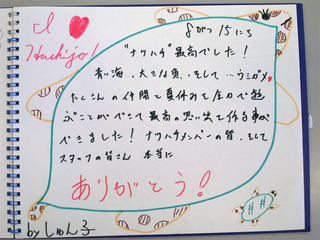 I ♥
Hachijo!
8がつ15にち
"ナツハチ"最高でした!
青い海、大きな魚、そして…ウミガメ♥
たくさんの仲間と夏休みを全力で遊
ぶことができて最高の思い出を作る事が
できました!ナツハチメンバーの皆、そして
スタッフの皆さん 本当に
ありがとう!
byしゅん子